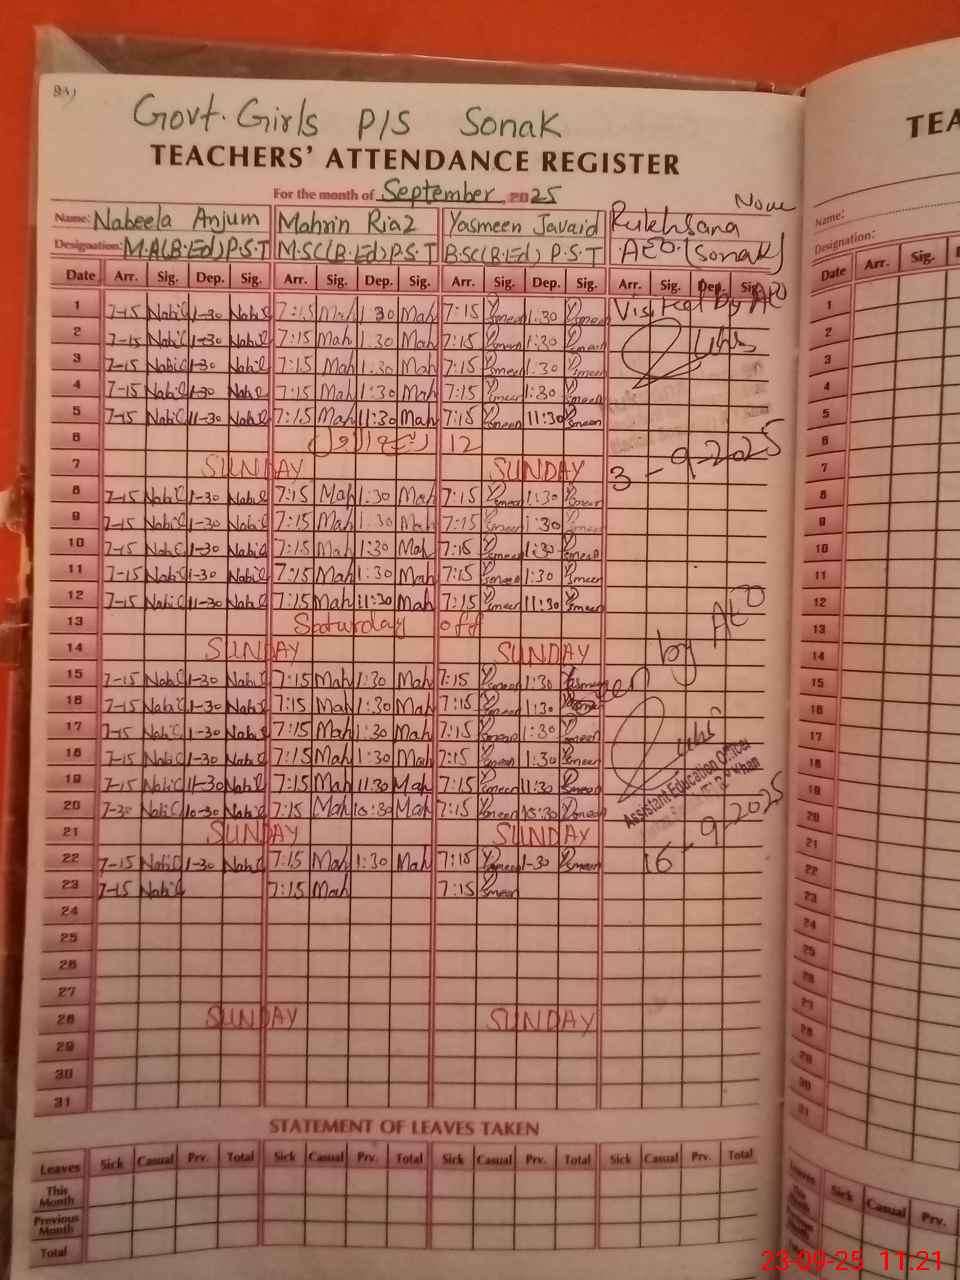 Govt. Girls P/S Sonak
TEACHERS' ATTENDANCE REGISTER
For the month of September, 2025
Name: Nabeela Anjum Mahrin Riaz Yasmeen Javaid Rukhsana
Designation: M.A(B.Ed) P.S.T M.SC(B.Ed) P.S.T B.SC(B.Ed) P.S.T AEO (Sonak)
Date Arr. Sig. Dep. Sig. Arr. Sig. Dep. Sig. Arr. Sig. Dep. Sig. Arr. Sig. Dep. Sig.
1 7-15 Nabil 1-30 Nabil 7:15 Mah 1:30 Mah 7:15 Ysmeen 1:30 Ysmeen Visited by AEO
2 7-15 Nabil 1-30 Nabil 7:15 Mah 1:30 Mah 7:15 Ysmeen 1:30 Ysmeen
3 7-15 Nabil 1-30 Nabil 7:15 Mah 1:30 Mah 7:15 Ysmeen 1:30 Ysmeen
4 7-15 Nabil 1-30 Nabil 7:15 Mah 1:30 Mah 7:15 Ysmeen 1:30 Ysmeen
5 7-15 Nabil 11-30 Nabil 7:15 Mah 11:30 Mah 7:15 Ysmeen 11:30 Ysmeen
6 ربیع الاول 12
7 SUNDAY SUNDAY 3-9-2025
8 7-15 Nabil 1-30 Nabil 7:15 Mah 1:30 Mah 7:15 Ysmeen 1:30 Ysmeen
9 7-15 Nabil 1-30 Nabil 7:15 Mah 1:30 Mah 7:15 Ysmeen 1:30 Ysmeen
10 7-15 Nabil 1-30 Nabil 7:15 Mah 1:30 Mah 7:15 Ysmeen 1:30 Ysmeen
11 7-15 Nabil 1-30 Nabil 7:15 Mah 1:30 Mah 7:15 Ysmeen 1:30 Ysmeen
12 7-15 Nabil 11-30 Nabil 7:15 Mah 11:30 Mah 7:15 Ysmeen 11:30 Ysmeen
13 Saturday off
14 SUNDAY SUNDAY by AEO
15 7-15 Nabil 1-30 Nabil 7:15 Mah 1:30 Mah 7:15 Ysmeen 1:30 Yasmeen
16 7-15 Nabil 1-30 Nabil 7:15 Mah 1:30 Mah 7:15 Ysmeen 1:30
17 7-15 Nabil 1-30 Nabil 7:15 Mah 1:30 Mah 7:15 Ysmeen 1:30 Ysmeen
18 7-15 Nabil 1-30 Nabil 7:15 Mah 1:30 Mah 7:15 Ysmeen 1:30 Ysmeen
Assistant Education Officer
19 7-15 Nabil 11-30 Nabil 7:15 Mah 11:30 Mah 7:15 Ysmeen 11:30 Ysmeen
20 7-30 Nabil 10-30 Nabil 7:15 Mah 10:30 Mah 7:15 Ysmeen 10:30 Ysmeen
21 SUNDAY SUNDAY
16-9-2025
22 7-15 Nabil 1-30 Nabil 7:15 Mah 1:30 Mah 7:15 Ysmeen 1-30 Ysmeen
23 7-15 Nabil 7:15 Mah 7:15 Ysmeen
24
25
26
27
28 SUNDAY SUNDAY
29
30
31
STATEMENT OF LEAVES TAKEN
Leaves Sick Casual Prv. Total Sick Casual Prv. Total Sick Casual Prv. Total Sick Casual Prv. Total
This Month
Previous Month
Total
TEA
Name:
Designation:
Date Arr. Sig.
1
2
3
4
5
6
7
8
9
10
11
12
13
14
15
16
17
18
19
20
21
22
23
24
25
26
27
28
29
30
31
Leaves Sick Casual Prv.
23-09-25 11:21